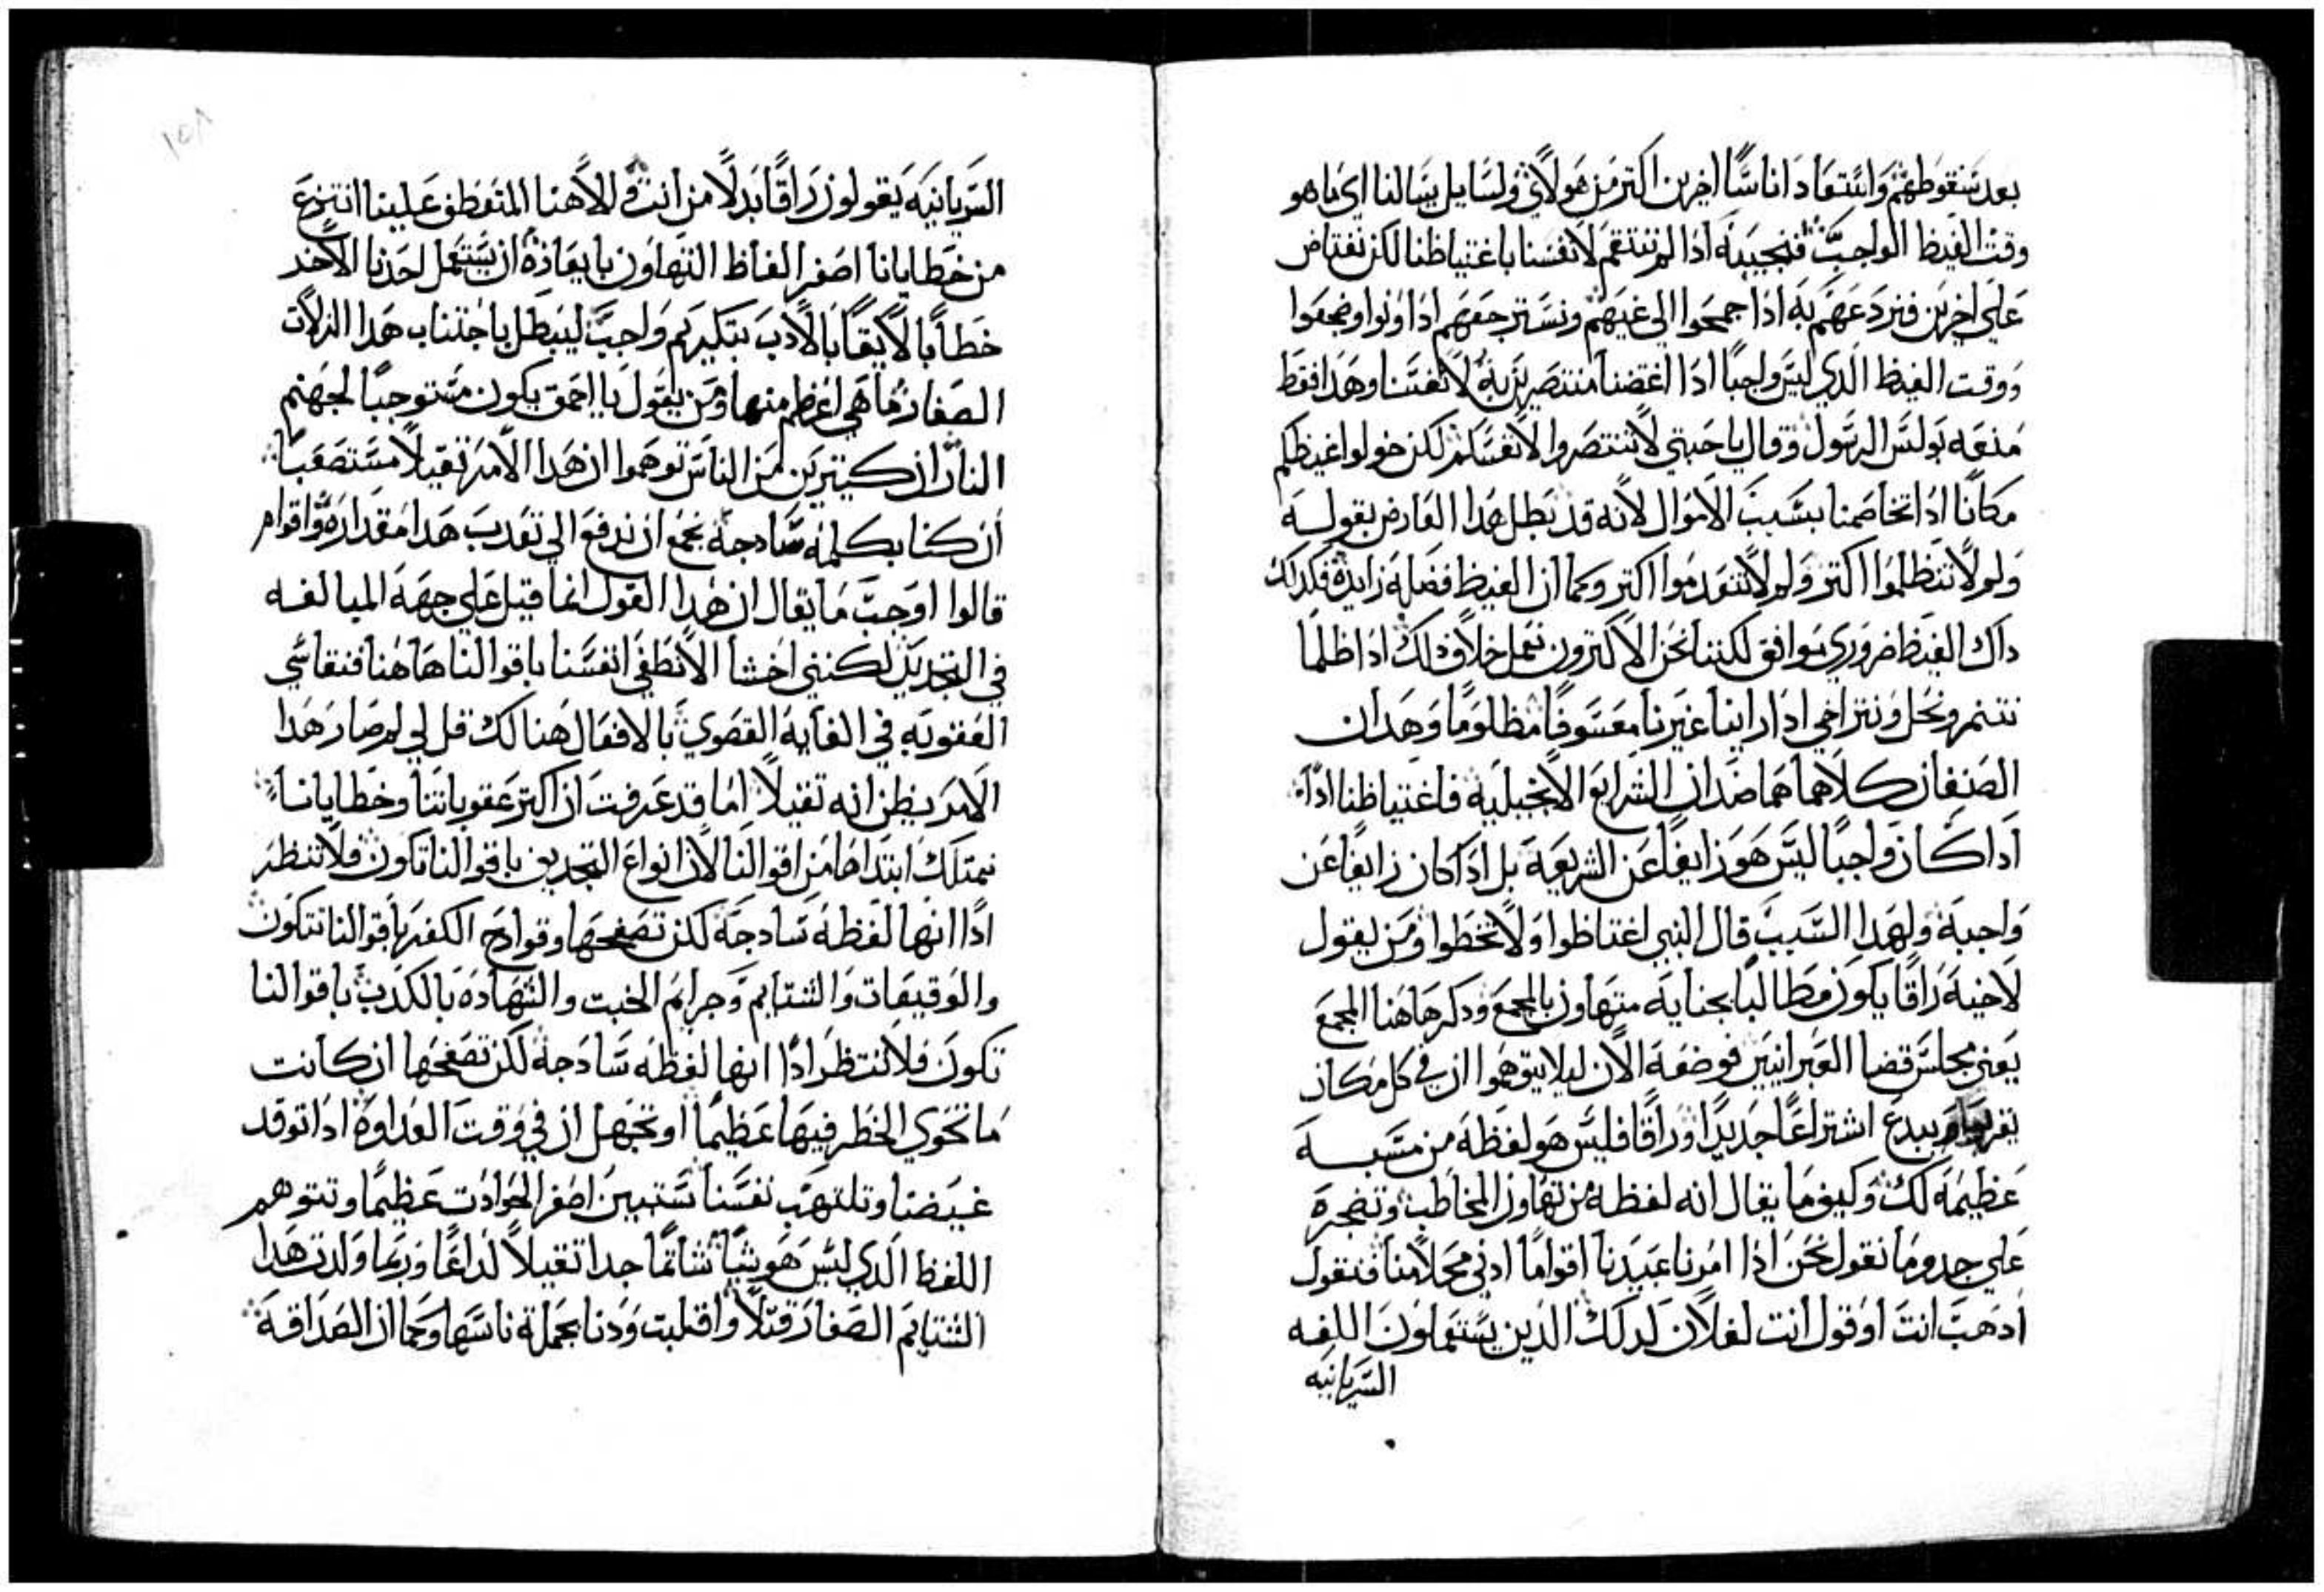 بعد سقوطهم وانتعاد اناسًا اخرين اكتر من هولاي ولسايل يسالنا اي ما هو
وقت الغيظ الواجب فنجيبه اذا لم ننتقم لانفسنا باغتياظنا لكن نغتاض
على اخرين فنردعهم به اذا جمحوا الى غيهم ونسترجعهم اذا ونوا وضجعوا
ووقت الغيظ الذي ليس واجبًا اذا اغتضنا منتصرين به لانفسنا وهذا فقط
منعه بولس الرسول وقال يا حبتي لا تنتصروا لانفسكم لكن خولوا غيظكم
مكانًا اذا تخاصمنا بسبب الاموال لانه قد بطل هذا العارض بقوله
ولم لا تنظلموا اكتر ولم لا تنعدموا اكتر وكما ان الغيظ فضلة زايدة فكدلك
داك الغيظ ضروري موافق لكننا نحن الاكترون نعمل خلاف دلك ادا ظلمنا
نتنمر ونحل ونتراخي ادا راينا غيرنا معسوفًا مظلومًا وهدان
الصنفان كلاهما هما ضدان الشرايع الانجيلية فاغتياظنا ادًا
ادا كان واجبًا ليس هو زايغًا عن الشريعة بل ادا كان زايغًا عن
واجبة ولهدا السبب قال النبي اغتاظوا ولا تخطوا ومن يقول
لاخيه راقا يكون مطالبًا بجناية متهاون بالمجمع ودكر هاهنا المجمع
يعني مجلس قضا العبرانيين فوضعه الان ليلا يتوهموا ان في كل مكان
يبدع اشتراعًا جديدًا وراقا فليس هو لفظة من مسبه
عظيمة لك وكيف ما يقال انه لفظة من تهاون المخاطب وتضجره
على حدو ما نقول نحن ادا امرنا عبيدنا اقوامًا ادنى محلًا منا فنقول
ادهب انت او قول انت لفلان لدلك الدين يستعملون اللغه
السريانيه
السريانيه يقولون راقا بدلًا من انت والاهنا المتعطف علينا انتزع
من خطايانا اصغر الفاظ التهاون بايعاذه ان يستعمل احدنا الاخد
خطابًا لايقًا بالادب بتكريم واجب ليبطل باجتناب هدا الزلات
الصغار ما هي اعظم منها ومن يقول يا احمق يكون مستوجبًا لجهنم
النار ان كتيرين من الناس توهموا ان هدا الامر تقيلًا مستصعبًا
ان كنا بكلمه سادجة نجمع ان ندفع الى تعديب هدا مقداره واقوام
قالوا اوجب ما يقال ان هدا القول انما قيل على جهة المبالغه
في التجديد لكنني اخشا الا نطغي انفسنا باقوالنا هاهنا فنقاسي
العقوبه في الغاية القصوي بالافعال هنالك قل لي لم صار هدا
الامر يظن انه تقيلًا اما قد عرفت ان اكتر عقوباتنا وخطايانا
تمتلك ابتداها من اقوالنا لان انواع التجديف باقوالنا تكون فلا تنظر
ادًا انها لفظة سادجة لكن تصفحها وقوادح الكفر باقوالنا تتكون
والوقيعات والشتايم وجرايم الخبت والشهادة بالكدب باقوالنا
تكون فلا تنظر ادًا انها لفظه سادجة لكن تصفحها ان كانت
ما تحوي الخطر فيها عظيمًا او تجهل ان في وقت العداوة ادا توقد
غيضنا وتلتهب نفسنا تستبين اصغر الحوادت عظيمًا وتتوهم
اللفظ الدي ليس هو شيًا شاتمًا جدا تقيلًا لداعًا وربما ولدت هدا
الشتايم الصغار قتلًا واقلبت ودنا بجملة ناسها وكما ان الصداقة